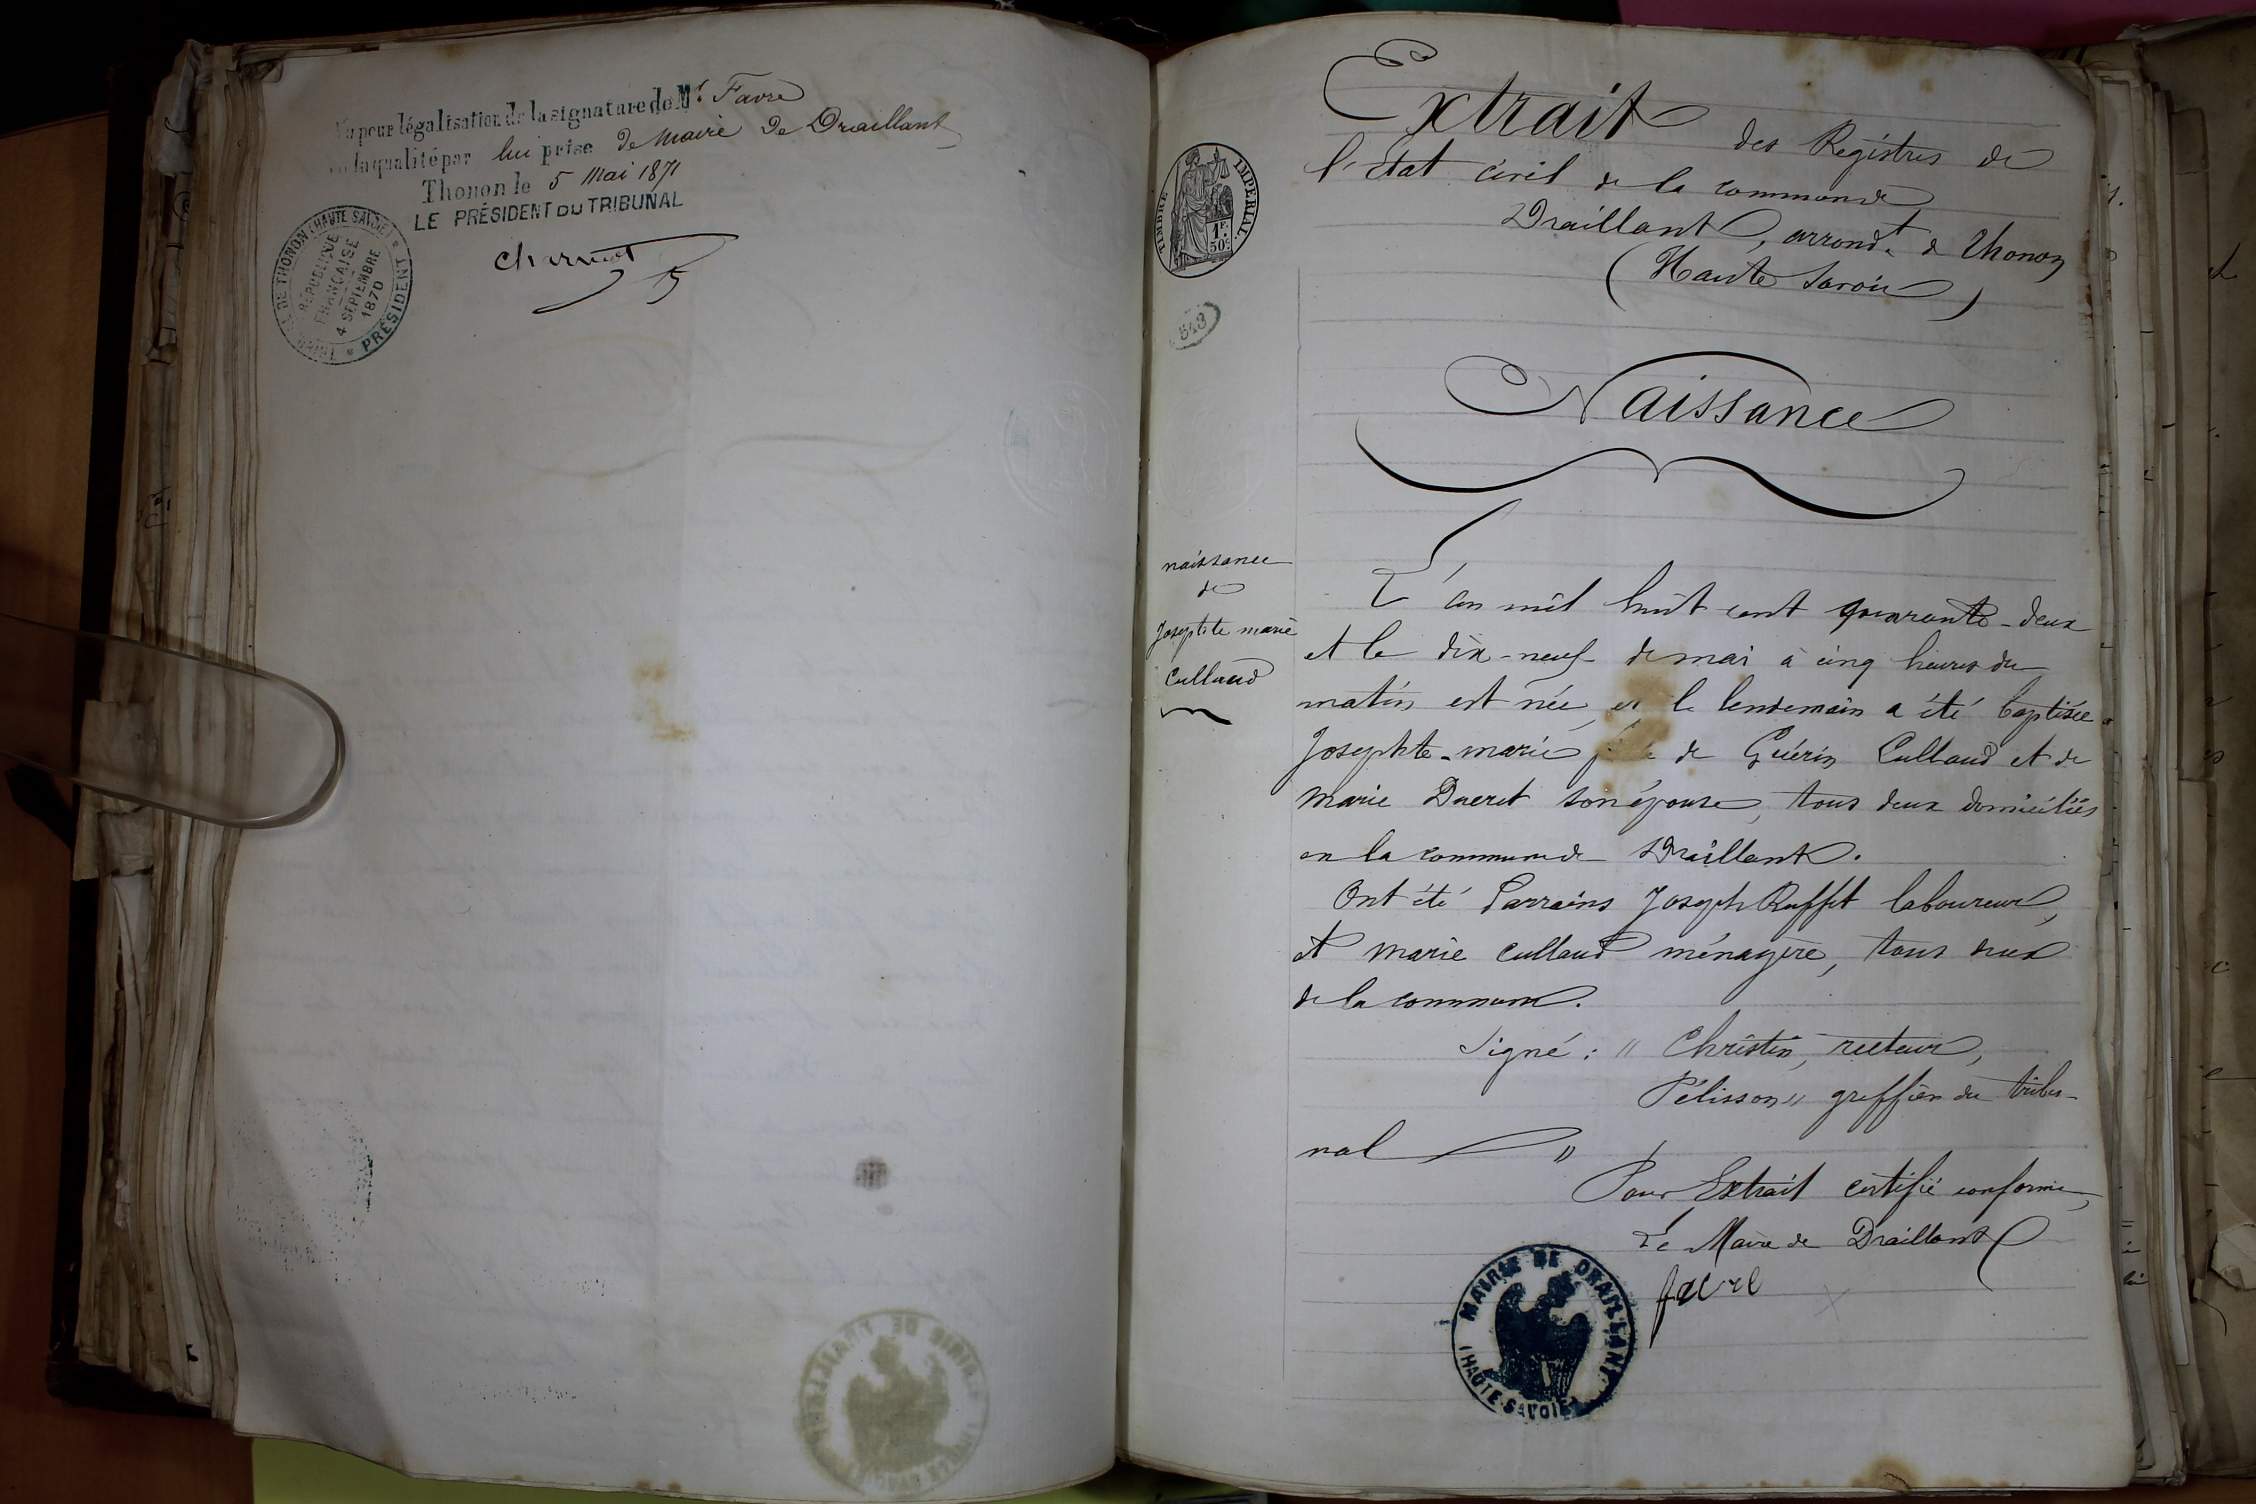 Vu pour légalisation de la signature de Mr. Favre
en la qualité par lui prise de maire de Draillant
Thonon le 5 Mai 1871
LE PRÉSIDENT DU TRIBUNAL
TRIBUNAL DE THONON (HAUTE SAVOIE) * PRÉSIDENT *
RÉPUBLIQUE
FRANÇAISE
4 SEPTEMBRE
1870
Extrait des Registres de
l'Etat civil de la commune de
Draillant, arrondt. de Thonon
(Haute Savoie)
TIMBRE IMPERIAL
1F.
50c.
543
Naissance
naissance
de
Josephte marie
Cullaud
L'an mil huit cent quarante-deux
et le dix-neuf de mai à cinq heures du
matin est née, et le lendemain a été baptisée
Josephte-marie fille de Guérin Cullaud et de
marie Ducret son épouse, tous deux domiciliés
en la commune de Draillant.
Ont été Parrains Joseph Ruffet laboureur,
et marie cullaud ménagère, tous deux
de la commune.
Signé : " Christin, recteur,
Pélisson " greffier du tribu-
nal "
Pour Extrait certifié conforme,
Le Maire de Draillant
favre
MAIRIE DE DRAILLANT
(HAUTE-SAVOIE)